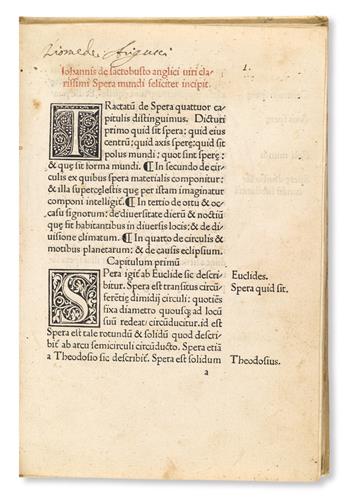 Diomedes Arigucci
1.
Iohannis de sactobusto anglici uiri cla-
rissimi Spera mundi feliciter incipit.
TRactatū de Spera quattuor ca-
pitulis distinguimus. Dicturi
primo quid sit spera; quid eius
centrū; quid axis sperę; quid sit
polus mundi; quot sint sperę;
& quę sit forma mundi. ¶ In secundo de cir-
culis ex quibus spera materialis componitur;
& illa supercęlestis quę per istam imaginatur
componi intelligiť. ¶ In tertio de ortu & oc-
casu signorum: de diuersitate dierū & noctiū
quę fit habitantibus in diuersis locis: & de di-
uisione climatum. ¶ In quarto de circulis &
motibus planetarum: & de causis eclipsium.
Capitulum primū
SPera igiť ab Euclide sic descri-
bitur. Spera est transitus circū-
ferētię dimidij circuli: quotiēs
fixa diametro quousq; ad locū
suū redeat circūducitur. id est
Spera est tale rotundū & solidū quod descri-
biť ab arcu semicirculi circūducto. Spera etiā
a Theodosio sic describiť. Spera est solidum
Euclides.
Spera quid sit.
Theodosius.
a